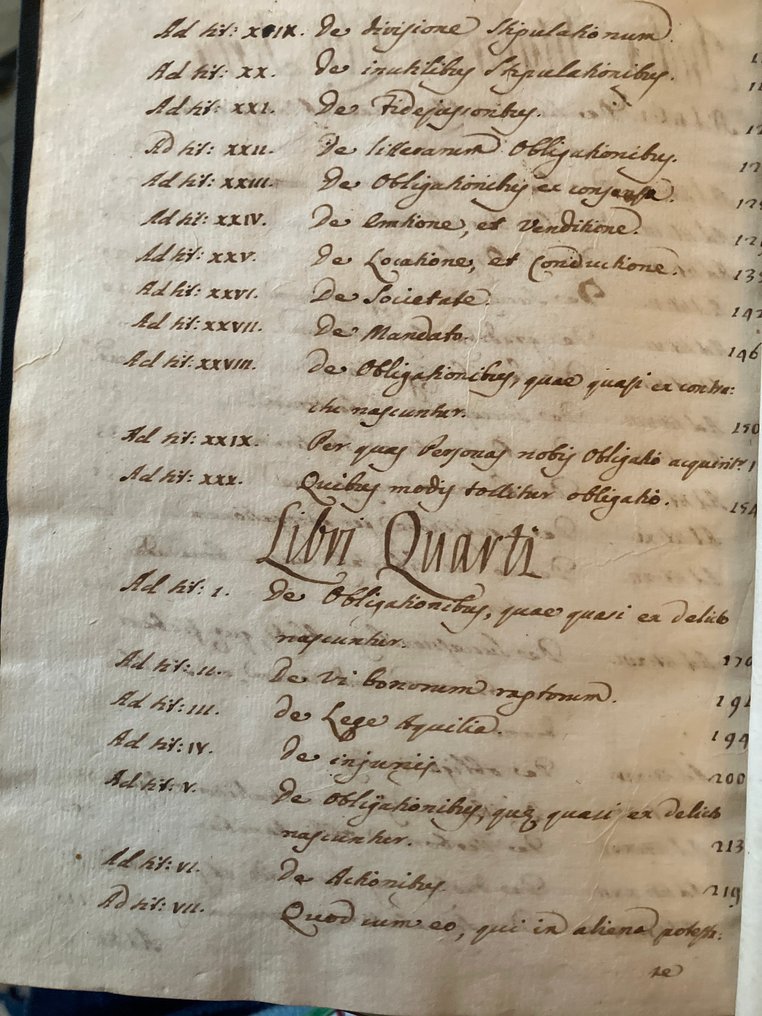 Ad tit: XVIX. De divisione Stipulationum.
Ad tit: XX. De inutilibus Stipulationibus.
Ad tit: XXI. De Fidejussoribus.
Ad tit: XXII. De litterarum Obligationibus.
Ad tit: XXIII. De Obligationibus ex consensu.
Ad tit: XXIV. De Emtione, et Venditione.
Ad tit: XXV. De Locatione, et Conductione. 135
Ad tit: XXVI. De Societate. 142
Ad tit: XXVII. De Mandato. 146
Ad tit: XXVIII. De Obligationibus, quae quasi ex contra:
ctu nascuntur. 150
Ad tit: XXIX. Per quas Personas nobis Obligatio acquirit.r
Ad tit: XXX. Quibus modis tollitur obligatio. 154
Libri Quarti
Ad tit: I. De Obligationibus, quae quasi ex delicto
nascuntur. 170
Ad tit: II. De Vi bonorum raptorum. 191
Ad tit: III. de Lege Aquilia. 194
Ad tit: IV. De injuriis. 200
Ad tit: V. De Obligationibus, quę quasi ex delicto
nascuntur. 213
Ad tit: VI. De Actionibus. 219
Ad tit: VII. Quod cum eo, qui in aliena potesta:
te